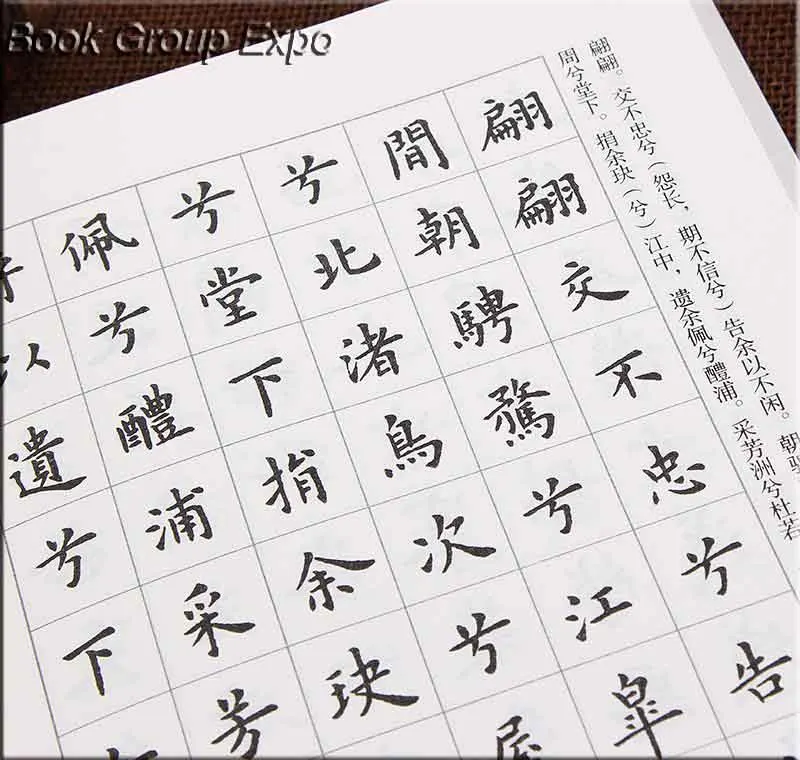 Book Group Expo
翩翩。交不忠兮（怨长，期不信兮）告余以不闲。朝
周兮堂下。捐余玦（兮）江中，遗余佩兮醴浦。采芳洲兮杜若
翩翩交不忠兮告
間朝騁騖兮江皋
兮北渚鳥次兮屋
兮堂下捐余玦
佩兮醴浦采芳
以遺兮下